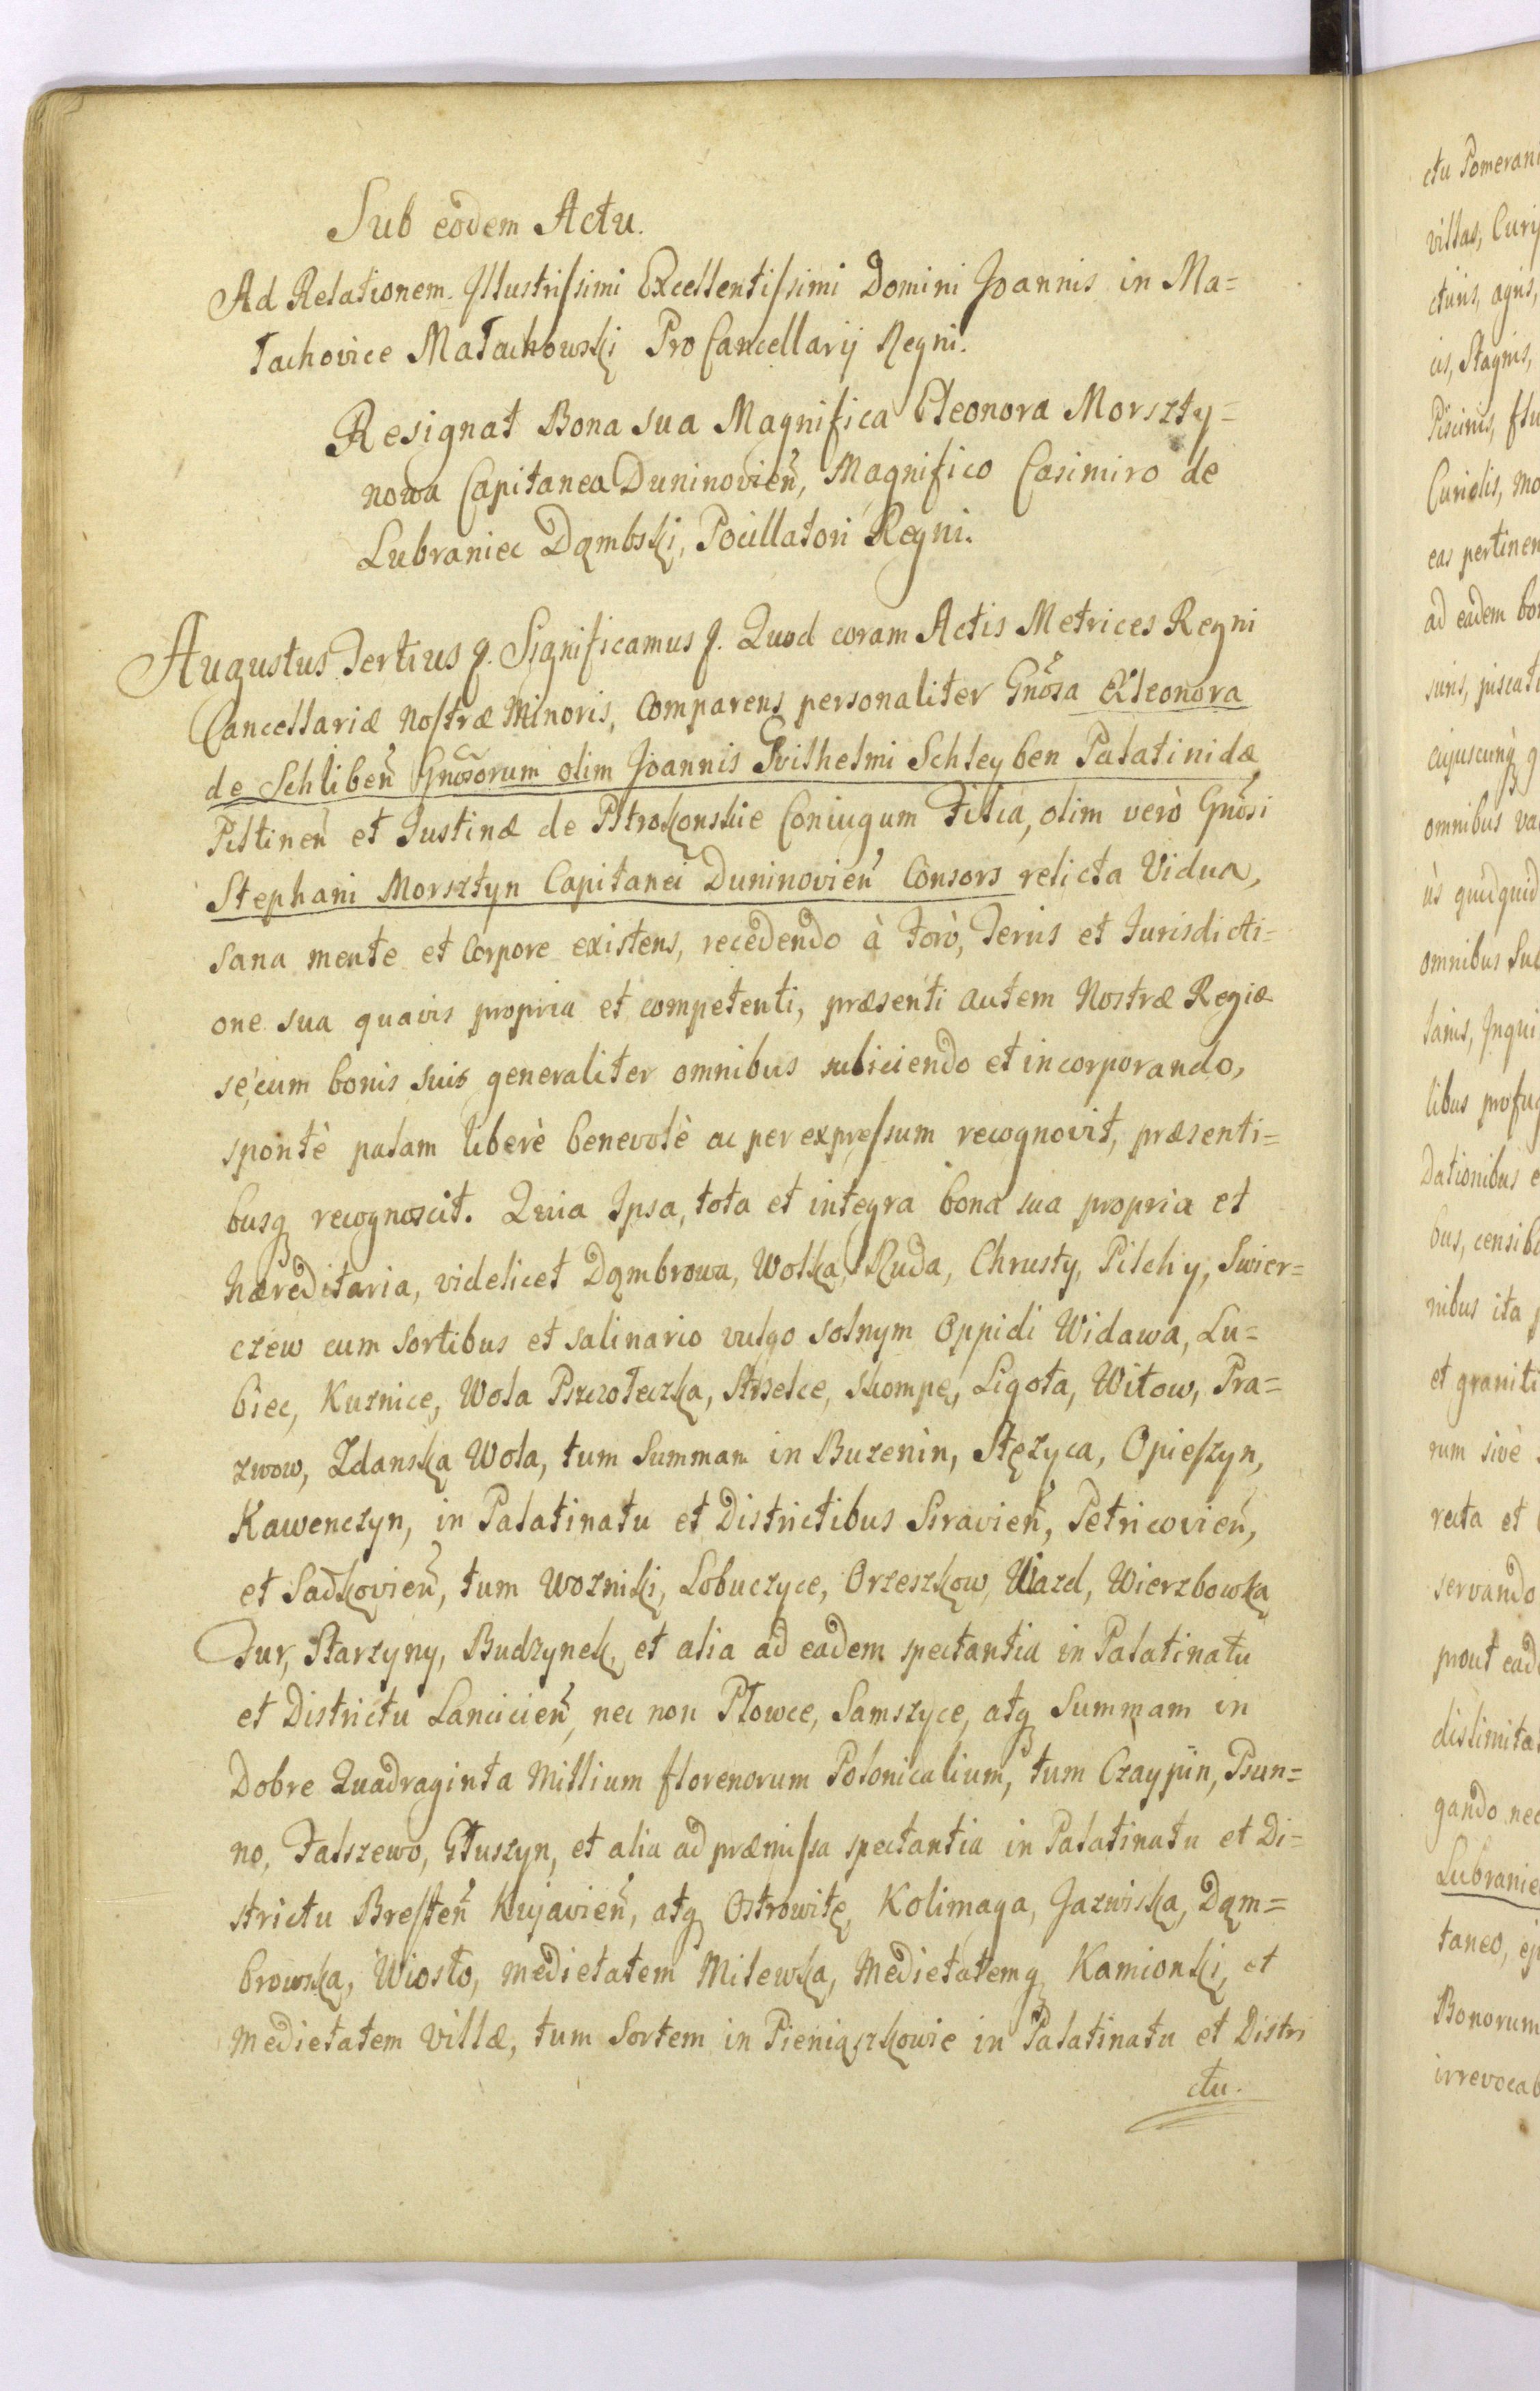 Sub eodem Actu.
Ad Relationem Illustrissimi Excellentissimi Domini Joannis in Ma=
łachovice Małachowski Pro Cancellarij Regni.
Resignat Bona sua Magnifica Eleonora Morszty=
nowa Capitanea Duninovień, Magnifico Casimiro de
Lubraniec Dąmbski, Pocillatori Regni.
Augustus Tertius &. Significamus &. Quod coram Actis Metrices Regni
Cancellariæ Nostræ Minoris, Comparens personaliter Gnosa Eleonora
de Schlibeñ Gnosorum olim Joannis Guilhelmi Schleyben Palatinidæ
Piltineñ et Justinæ de Pstrokonskie Coniugum Filia, olim verò Gnosi
Stephani Morsztyn Capitanei Duninovień Consors relicta Vidua,
sana mente et Corpore existens, recedendo à Forò, Terris et Jurisdicti=
one sua quavis propria et competenti, præsenti autem Nostræ Regiæ
se, cum bonis suis generaliter omnibus subiciendo et incorporando,
spontè palam liberè benevolè ac per expressum recognovit, præsenti=
busq recognoscit. Quia Ipsa, tota et integra bona sua propria et
hæreditaria, videlicet Dąmbrowa, Wolka, Ruda, Chrusty, Pilchy, Swier=
czew cum Sortibus et salinario vulgo solnym Oppidi Widawa, Lu=
biec, Kuznice, Wola Pszczołeczka, Strzelce, Skompe, Ligota, Witow, Pra=
zwow, Zdanska Wola, tum Summam in Buzenin, Stęzyca, Opieszyn,
Kawenczyn, in Palatinatu et Districtibus Siravień, Petricovień,
et Sadkovień, tum Wozniki, Lobuczyce, Orzeszkow, Uiazd, Wierzbowka
Tur, Starzyny, Budzynek, et alia ad eadem spectantia in Palatinatu
et Districtu Lancicień, nec non Płowce, Samszyce, atq Summam in
Dobre Quadraginta Millium florenorum Polonicalium, tum Czaypin, Psun=
no, Falszewo, Głuszyn, et alia ad præmissa spectantia in Palatinatu et Di=
strictu Bresteñ Kujavień, atq Ostrowite, Kolimaga, Jazwiska, Dąm=
browka, Wiosło, medietatem Milewka, Medietatemq Kamionki, et
Medietatem Villæ, tum Sortem in Pieniąszkowie in Palatinatu et Distri
ctu.
ctu Pomerani
villas, Curij
cturis, agris,
is, Stagnis,
Piscinis, flu
eas pertinen
ad eadem bo
omnibus va
omnibus Su
Dationibus e
bus, censibu
nibus ita
et graniti
rum sivè
recta et
servando
prout ead
dislimita
gando nec
Lubranie
taneo, ej
Bonorum
irrevocab